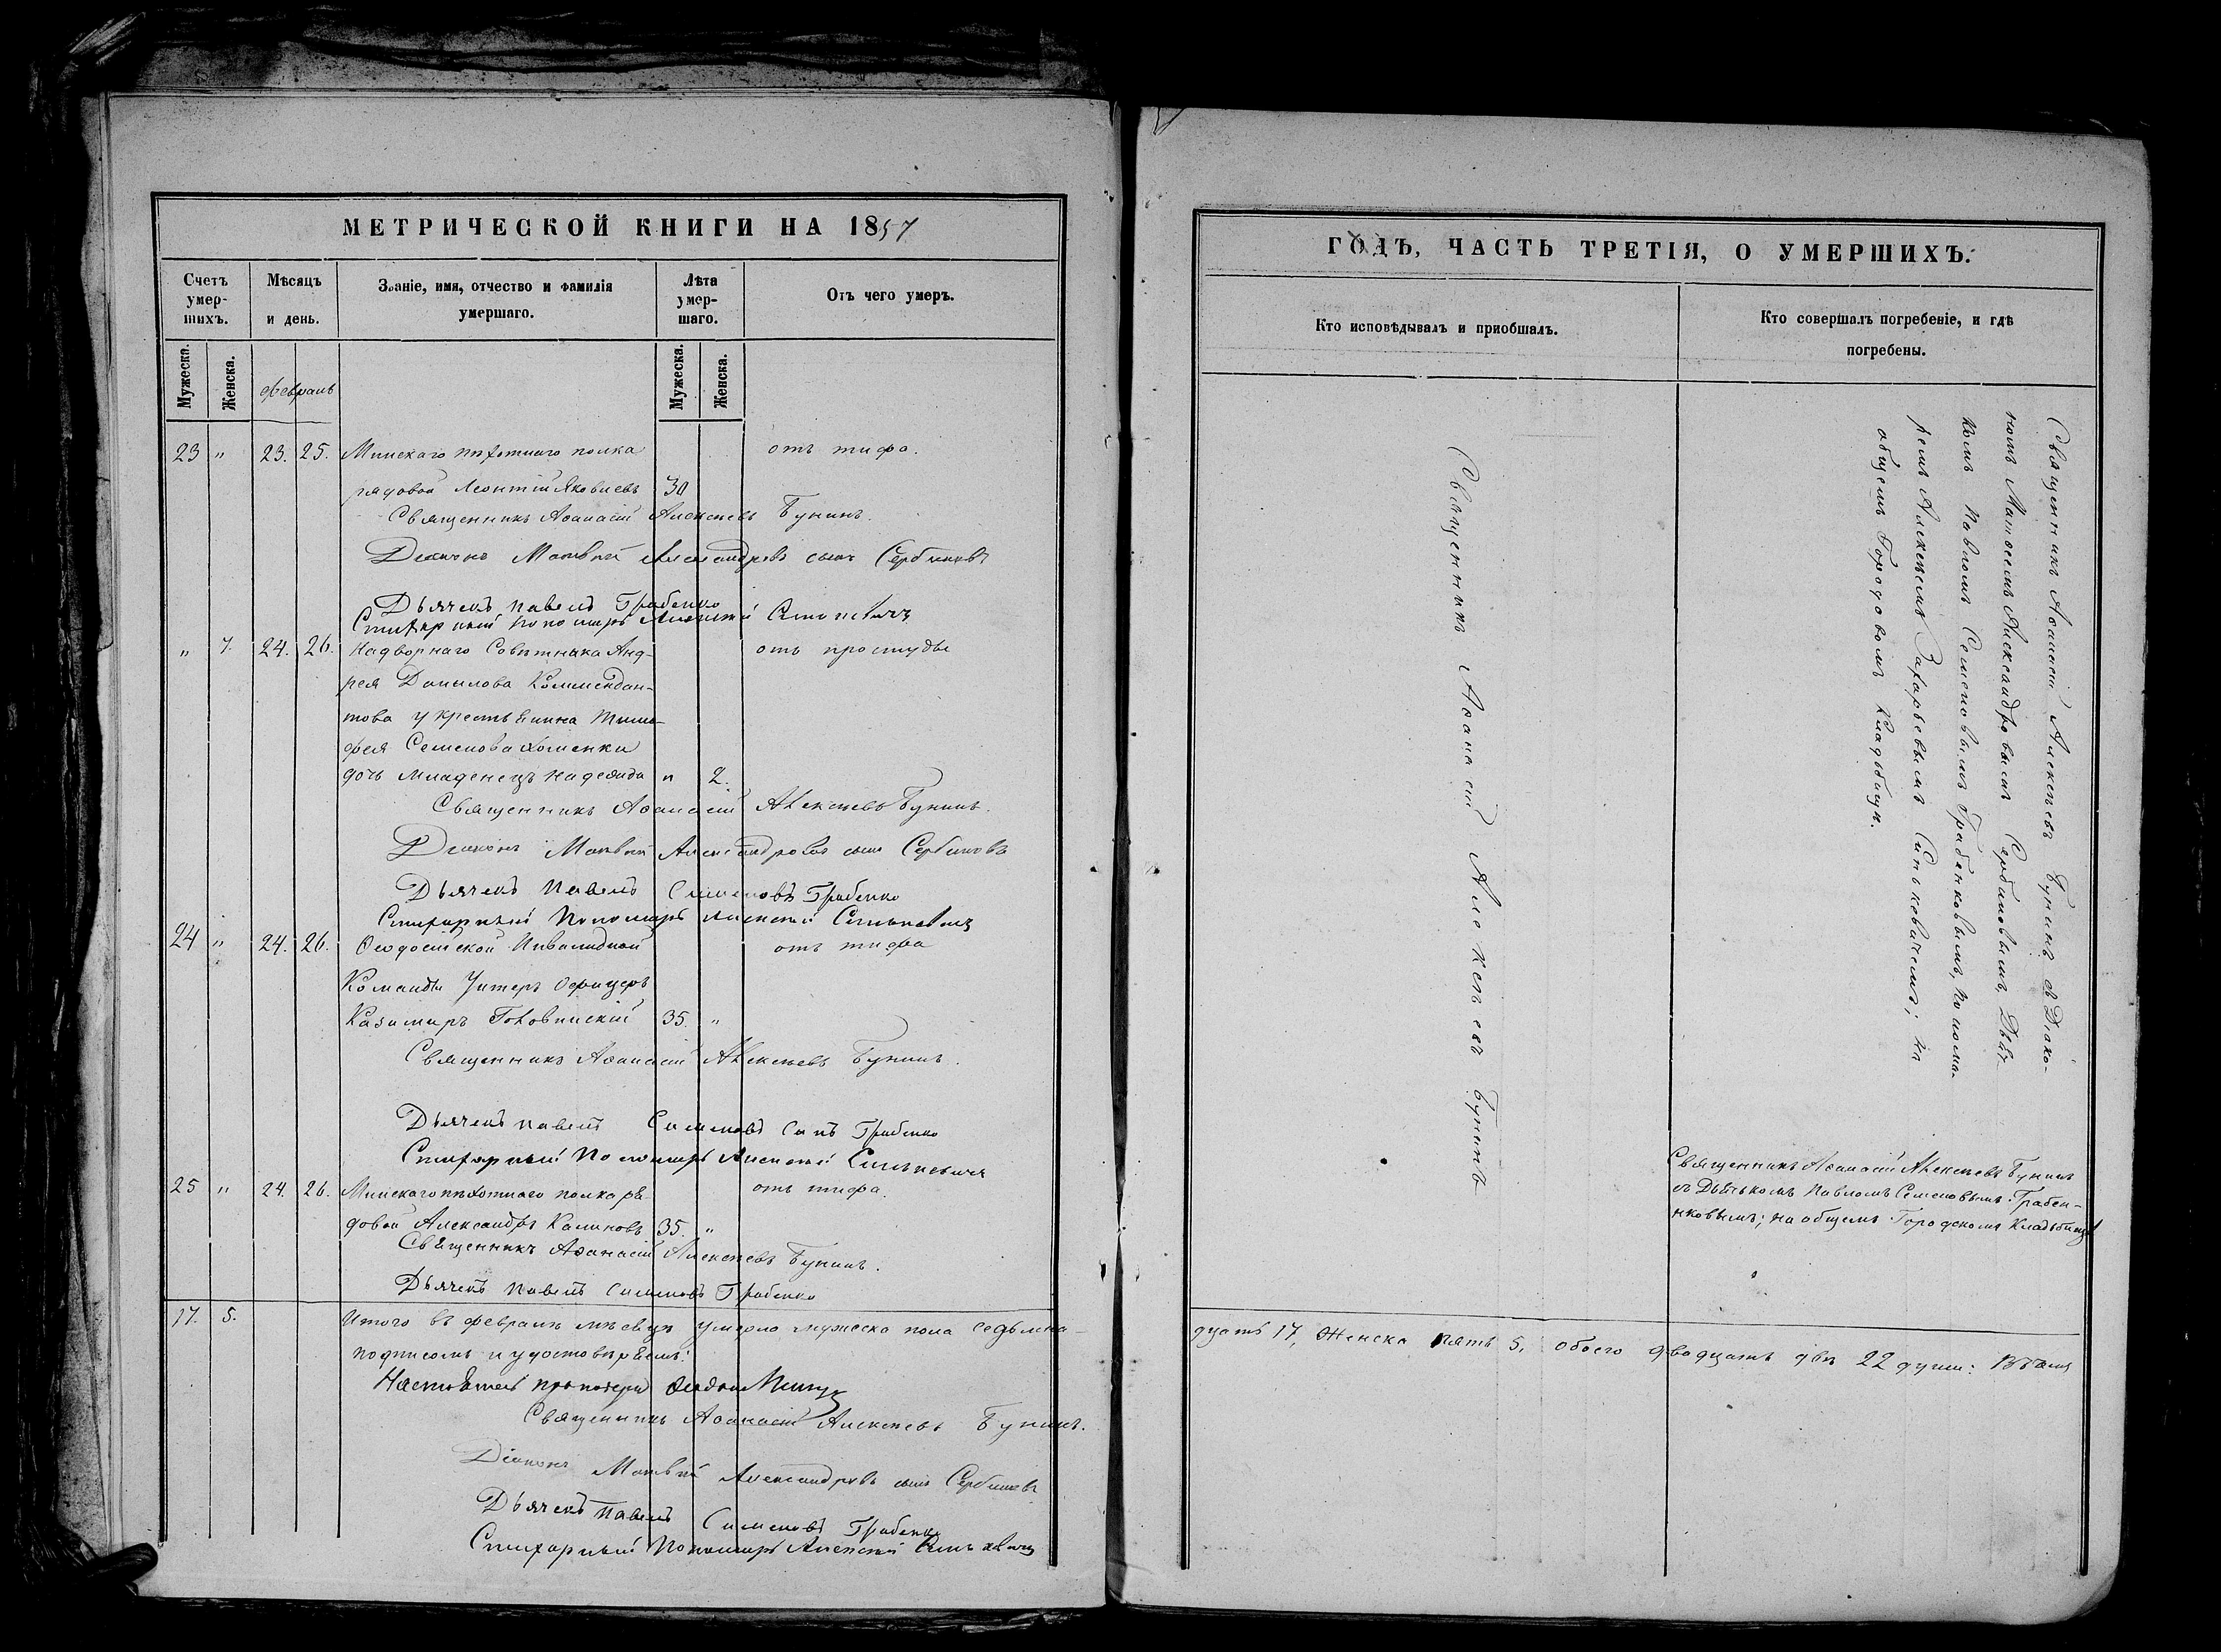 МЕТРИЧЕСКОЙ КНИГИ НА 1857
Счетъ умер- шихъ.
Мѣсяцъ и день.
Званіе, имя, отчество и фамилія умершаго.
Лѣта умер- шаго.
Отъ чего умеръ.
Мужеска.
Женска.
февраль
Мужеска.
Женска.
23 " 23. 25. Минскаго пѣхотнаго полка отъ тифа.
рядовой Леонтій Яковлевъ 30
Священникъ Аѳанасій Алексѣевъ Бунинъ.
Діаконъ Матвѣй Александровъ сынъ Сербиновъ
Дьячекъ Павелъ Грабенко
Стихарный Пономарь Алексѣй
" 7. 24. 26. Надворнаго Совѣтника Анд- отъ простуды
рея Данилова Коммендан-
това у крестьянина Тимо-
фея Семенова Хоменки
дочь младенецъ Надежда " 2.
Священникъ Аѳанасій Алексѣевъ Бунинъ.
Діаконъ Матвѣй Александровъ сынъ Сербиновъ
Дьячекъ Павелъ Семеновъ Грабенко
Стихарный Пономарь Алексѣй Синькевичъ
24 " 24. 26. Ѳеодосійской Инвалидной отъ тифа
Команды Унтеръ Офицеръ
Казимиръ 35. "
Священникъ Аѳанасій Алексѣевъ Бунинъ.
Дьячекъ Павелъ Семеновъ Сынъ Грабенко
Стихарный Пономарь Алексѣй Синькевичъ
25 " 24. 26. Минскаго пѣхотнаго полка ря- отъ тифа.
довой Александръ Калиновъ 35. "
Священникъ Аѳанасій Алексѣевъ Бунинъ.
Дьячекъ Павелъ Семеновъ Грабенко
17. 5. Итого въ февралѣ мѣсяцѣ умерло мужеска пола седьмна-
подписомъ и удостовѣряемъ:
Настоятель протоіерей
Священникъ Аѳанасій Алексѣевъ Бунинъ.
Діаконъ Матвѣй Александровъ сынъ Сербиновъ
Дьячекъ Павелъ Семеновъ Грабенко
Стихарный Пономарь Алексѣй Синькевичъ
ГОДЪ, ЧАСТЬ ТРЕТІЯ, О УМЕРШИХЪ.
Кто исповѣдывалъ и приобщалъ.
Кто совершалъ погребеніе, и гдѣ погребены.
Священникъ Аѳанасій Алексѣевъ Бунинъ
Священникъ Аѳанасій Алексѣевъ Бунинъ съ Діако-
номъ Матѳеемъ Александровымъ Сербиновымъ, Дьяч-
комъ Павломъ Семеновымъ Грабенковымъ, понома-
ремъ Алексѣемъ Захарьевымъ Синьковичемъ; на
общемъ Городовомъ Кладбищѣ.
Священникъ Аѳанасій Алексѣевъ Бунинъ
съ Дьячькомъ Павломъ Семеновымъ Грабен-
нковымъ; на общемъ Городскомъ Кладбищѣ
дцать 17, Женска пять 5, обоего двадцать двѣ 22 души: